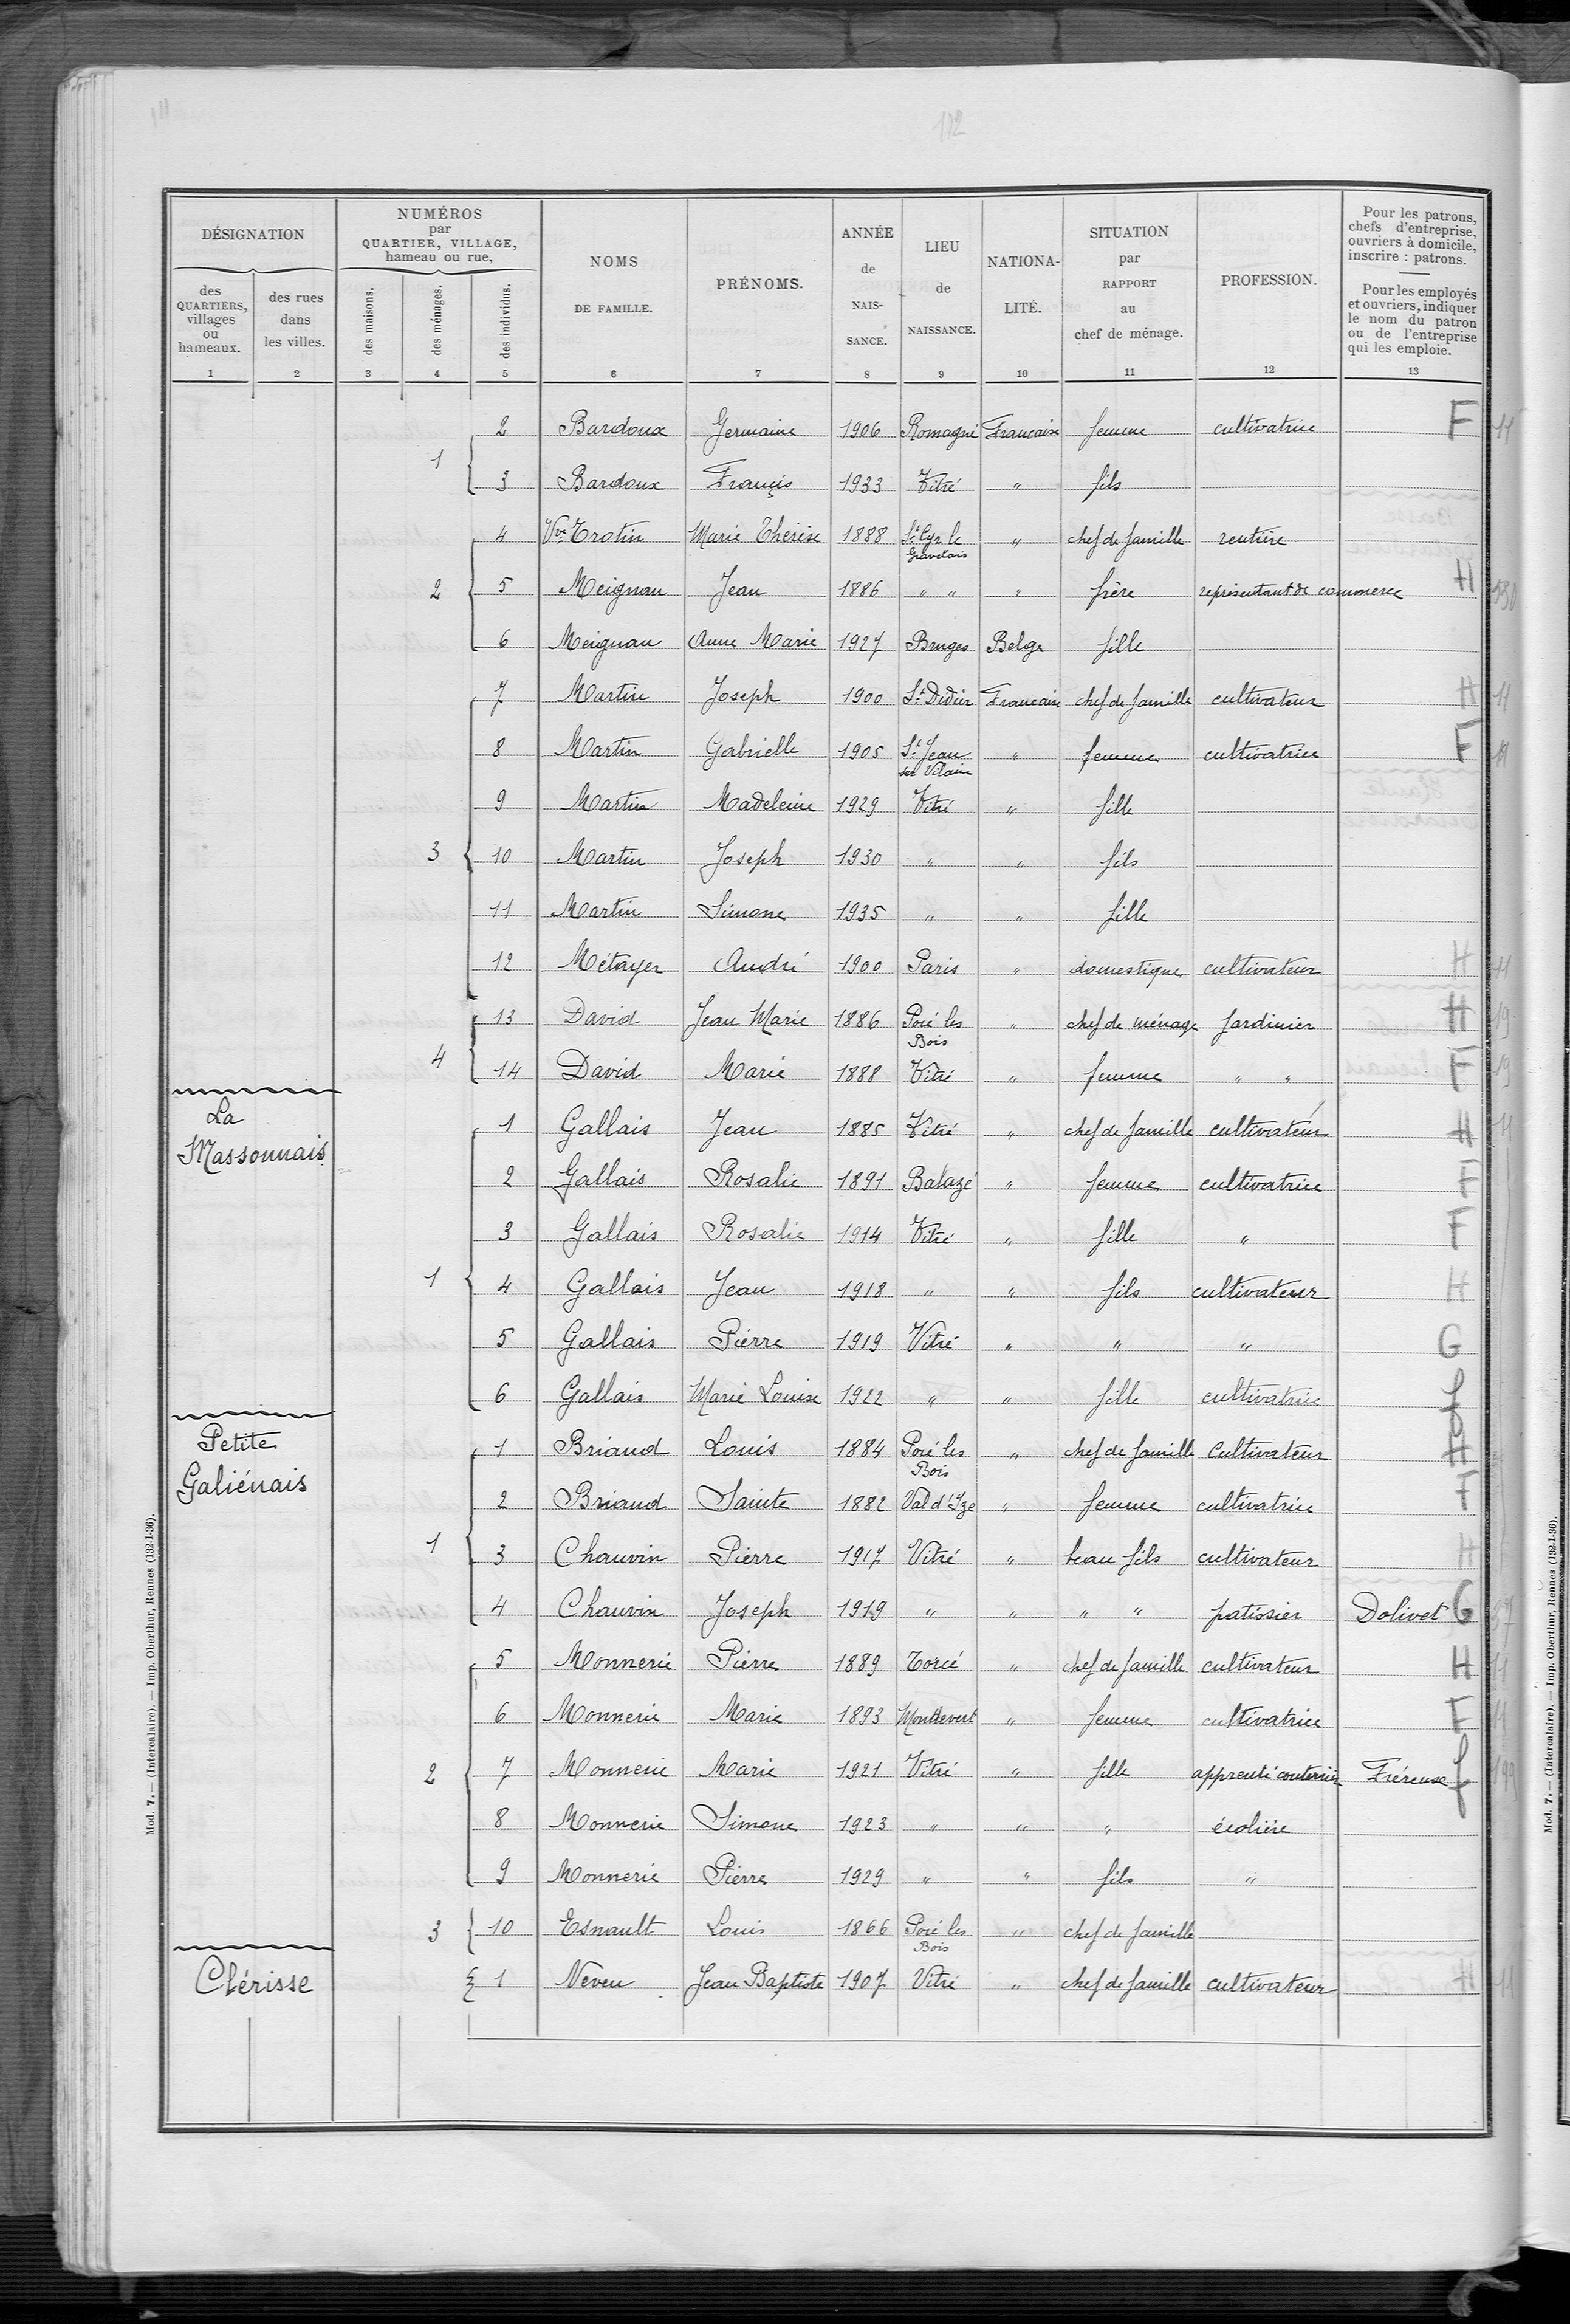 112
DÉSIGNATION
NUMÉROS
par
QUARTIER, VILLAGE,
hameau ou rue,
des
QUARTIERS,
villages
ou
hameaux.
des rues
dans
les villes.
des maisons.
des ménages.
des individus.
NOMS
DE FAMILLE.
PRÉNOMS.
ANNÉE
de
NAIS-
SANCE.
LIEU
de
NAISSANCE.
NATIONA-
LITÉ.
SITUATION
par
RAPPORT
au
chef de ménage.
PROFESSION.
Pour les patrons,
chefs d'entreprise,
ouvriers à domicile,
inscrire : patrons.
Pour les employés
et ouvriers, indiquer
le nom du patron
ou de l'entreprise
qui les emploie.
1 2 3 4 5 6 7 8 9 10 11 12 13
2 Bardoux Germaine 1906 Romagné Francaise femme cultivatrice F 11
1
3 Bardoux Françis 1933 Vitré " fils
4 Vve Trotin Marie Thérèse 1888 St Cyr le Gravelais " chef de famille rentière
2 5 Meignan Jean 1886 " " " frère représentant de commerce H
6 Meignan Anne Marie 1927 Bruges Belge fille
7 Martin Joseph 1900 St Didier Francaise chef de famille cultivateur H 11
8 Martin Gabrielle 1905 St Jean sur Vilaine " femme cultivatrice F 11
9 Martin Madeleine 1929 Vitré " fille
3 10 Martin Joseph 1930 " " fils
11 Martin Simone 1935 " " fille
12 Métayer André 1900 Paris " domestique cultivateur H 11
13 David Jean Marie 1886 Pocé les Bois " chef de ménage Jardinier H 19
4
14 David Marie 1888 Vitré " femme " " F 19
La
Massonnais
1 Gallais Jean 1885 Vitré " chef de famille cultivateur H 11
2 Gallais Rosalie 1891 Balazé " femme cultivatrice F
3 Gallais Rosalie 1914 Vitré " fille " F
1 4 Gallais Jean 1918 " " fils cultivateur H
5 Gallais Pierre 1919 Vitré " " " G
6 Gallais Marie Louise 1922 " " fille cultivatrice f
Petite
Galiénais
1 Briand Louis 1884 Pocé les Bois " chef de famille Cultivateur H
2 Briand Sainte 1882 Val d'Ize " femme cultivatrice F
1 3 Chauvin Pierre 1917 Vitré " beau fils cultivateur H
4 Chauvin Joseph 1919 " " " " patissier Dolivet G 37
5 Monnerie Pierre 1889 Torcé " chef de famille cultivateur H 11
6 Monnerie Marie 1893 Montrevert " femme cultivatrice F 11
2 7 Monnerie Marie 1921 Vitré " fille apprenti couturière f
8 Monnerie Simone 1923 " " " écolière
9 Monnerie Pierre 1929 " " fils "
3 10 Esnault Louis 1866 Pocé les Bois " chef de famille
Clérisse
1 Neveu Jean Baptiste 1907 Vitré " chef de famille cultivateur H 11
Mod. 7. — (Intercalaire). — Imp. Oberthur, Rennes (132-1-36).
Mod. 7. — (Intercalaire). — Imp. Oberthur, Rennes (132-1-36).